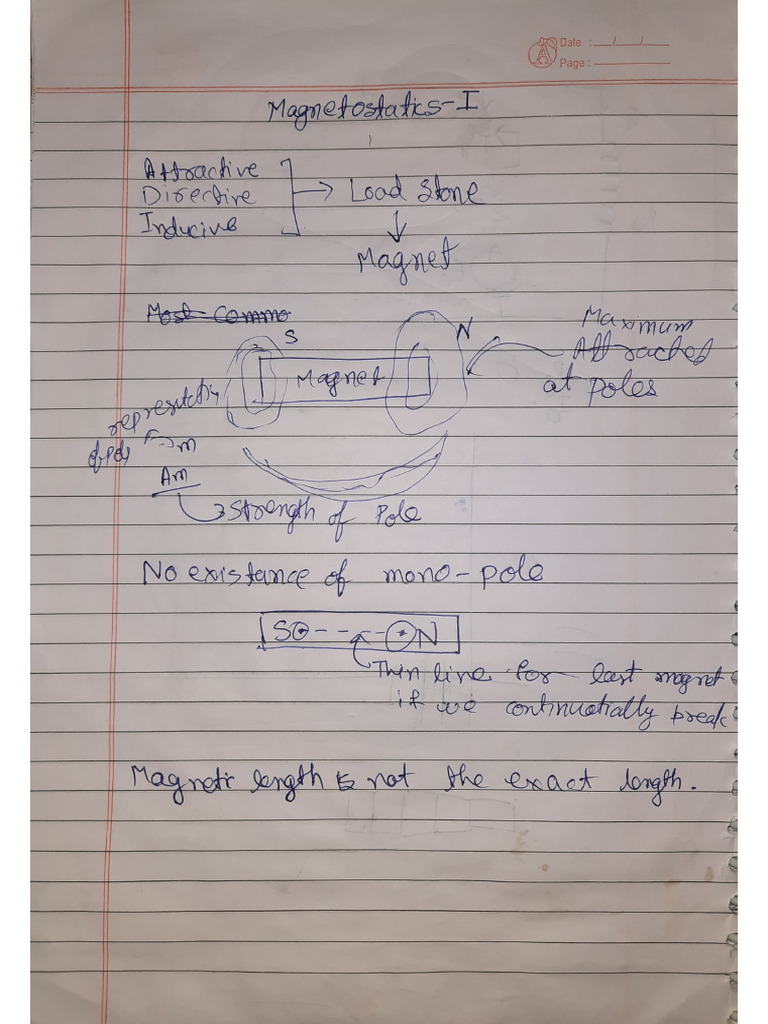 Date : __/__/__
Page :
Magnetostatics-I
Attractive
Directive
Inducive
→ Load Stone
↓
Magnet
Most Commo
S
N
Magnet
Maximum
Attracted
at poles
m
Am
→ Strength of Pole
No existance of mono-pole
S - - - N
Thin line for last magnet
if we continuatially break
Magnetic length is not the exact length.